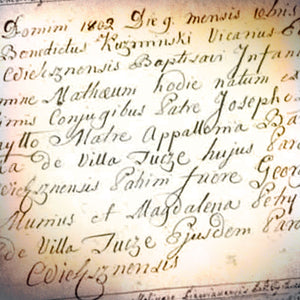 Domini 1802 Die 9. mensis 10bris
Benedictus Kuźminski Vicarius E
Wieksznensis Baptisavi Infan
mne Mathæum hodie natum es
timis Conjugibus Patre Josepho
aytto Matre Appallenia Ba
ka de Villa Tucze hujus Paro
Wieksznensis Patrini fuere Geor
Murnius et Magdalena Petry
de Villa Tucze Ejusdem Paro
Wieksznensis